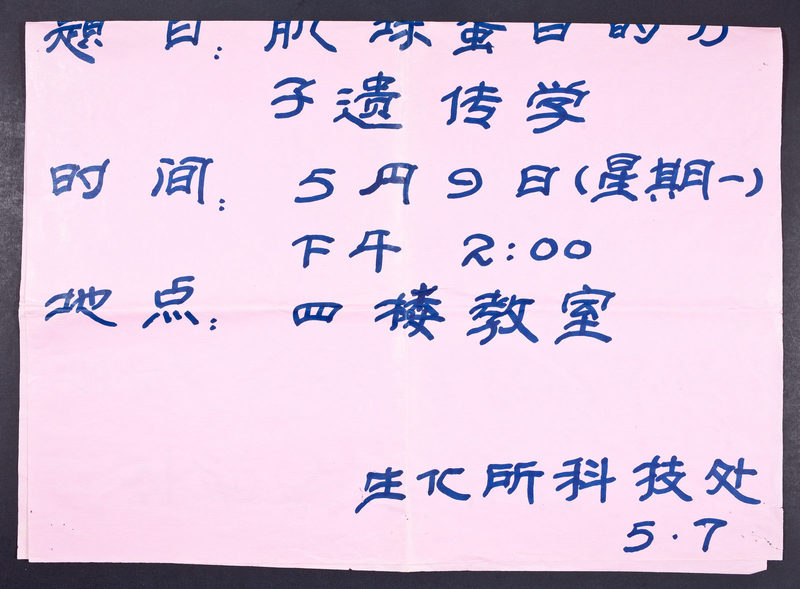 题目: 肌球蛋白的分
子遗传学
时间: 5月9日(星期一)
下午 2:00
地点: 四楼教室
生化所科技处
5.7